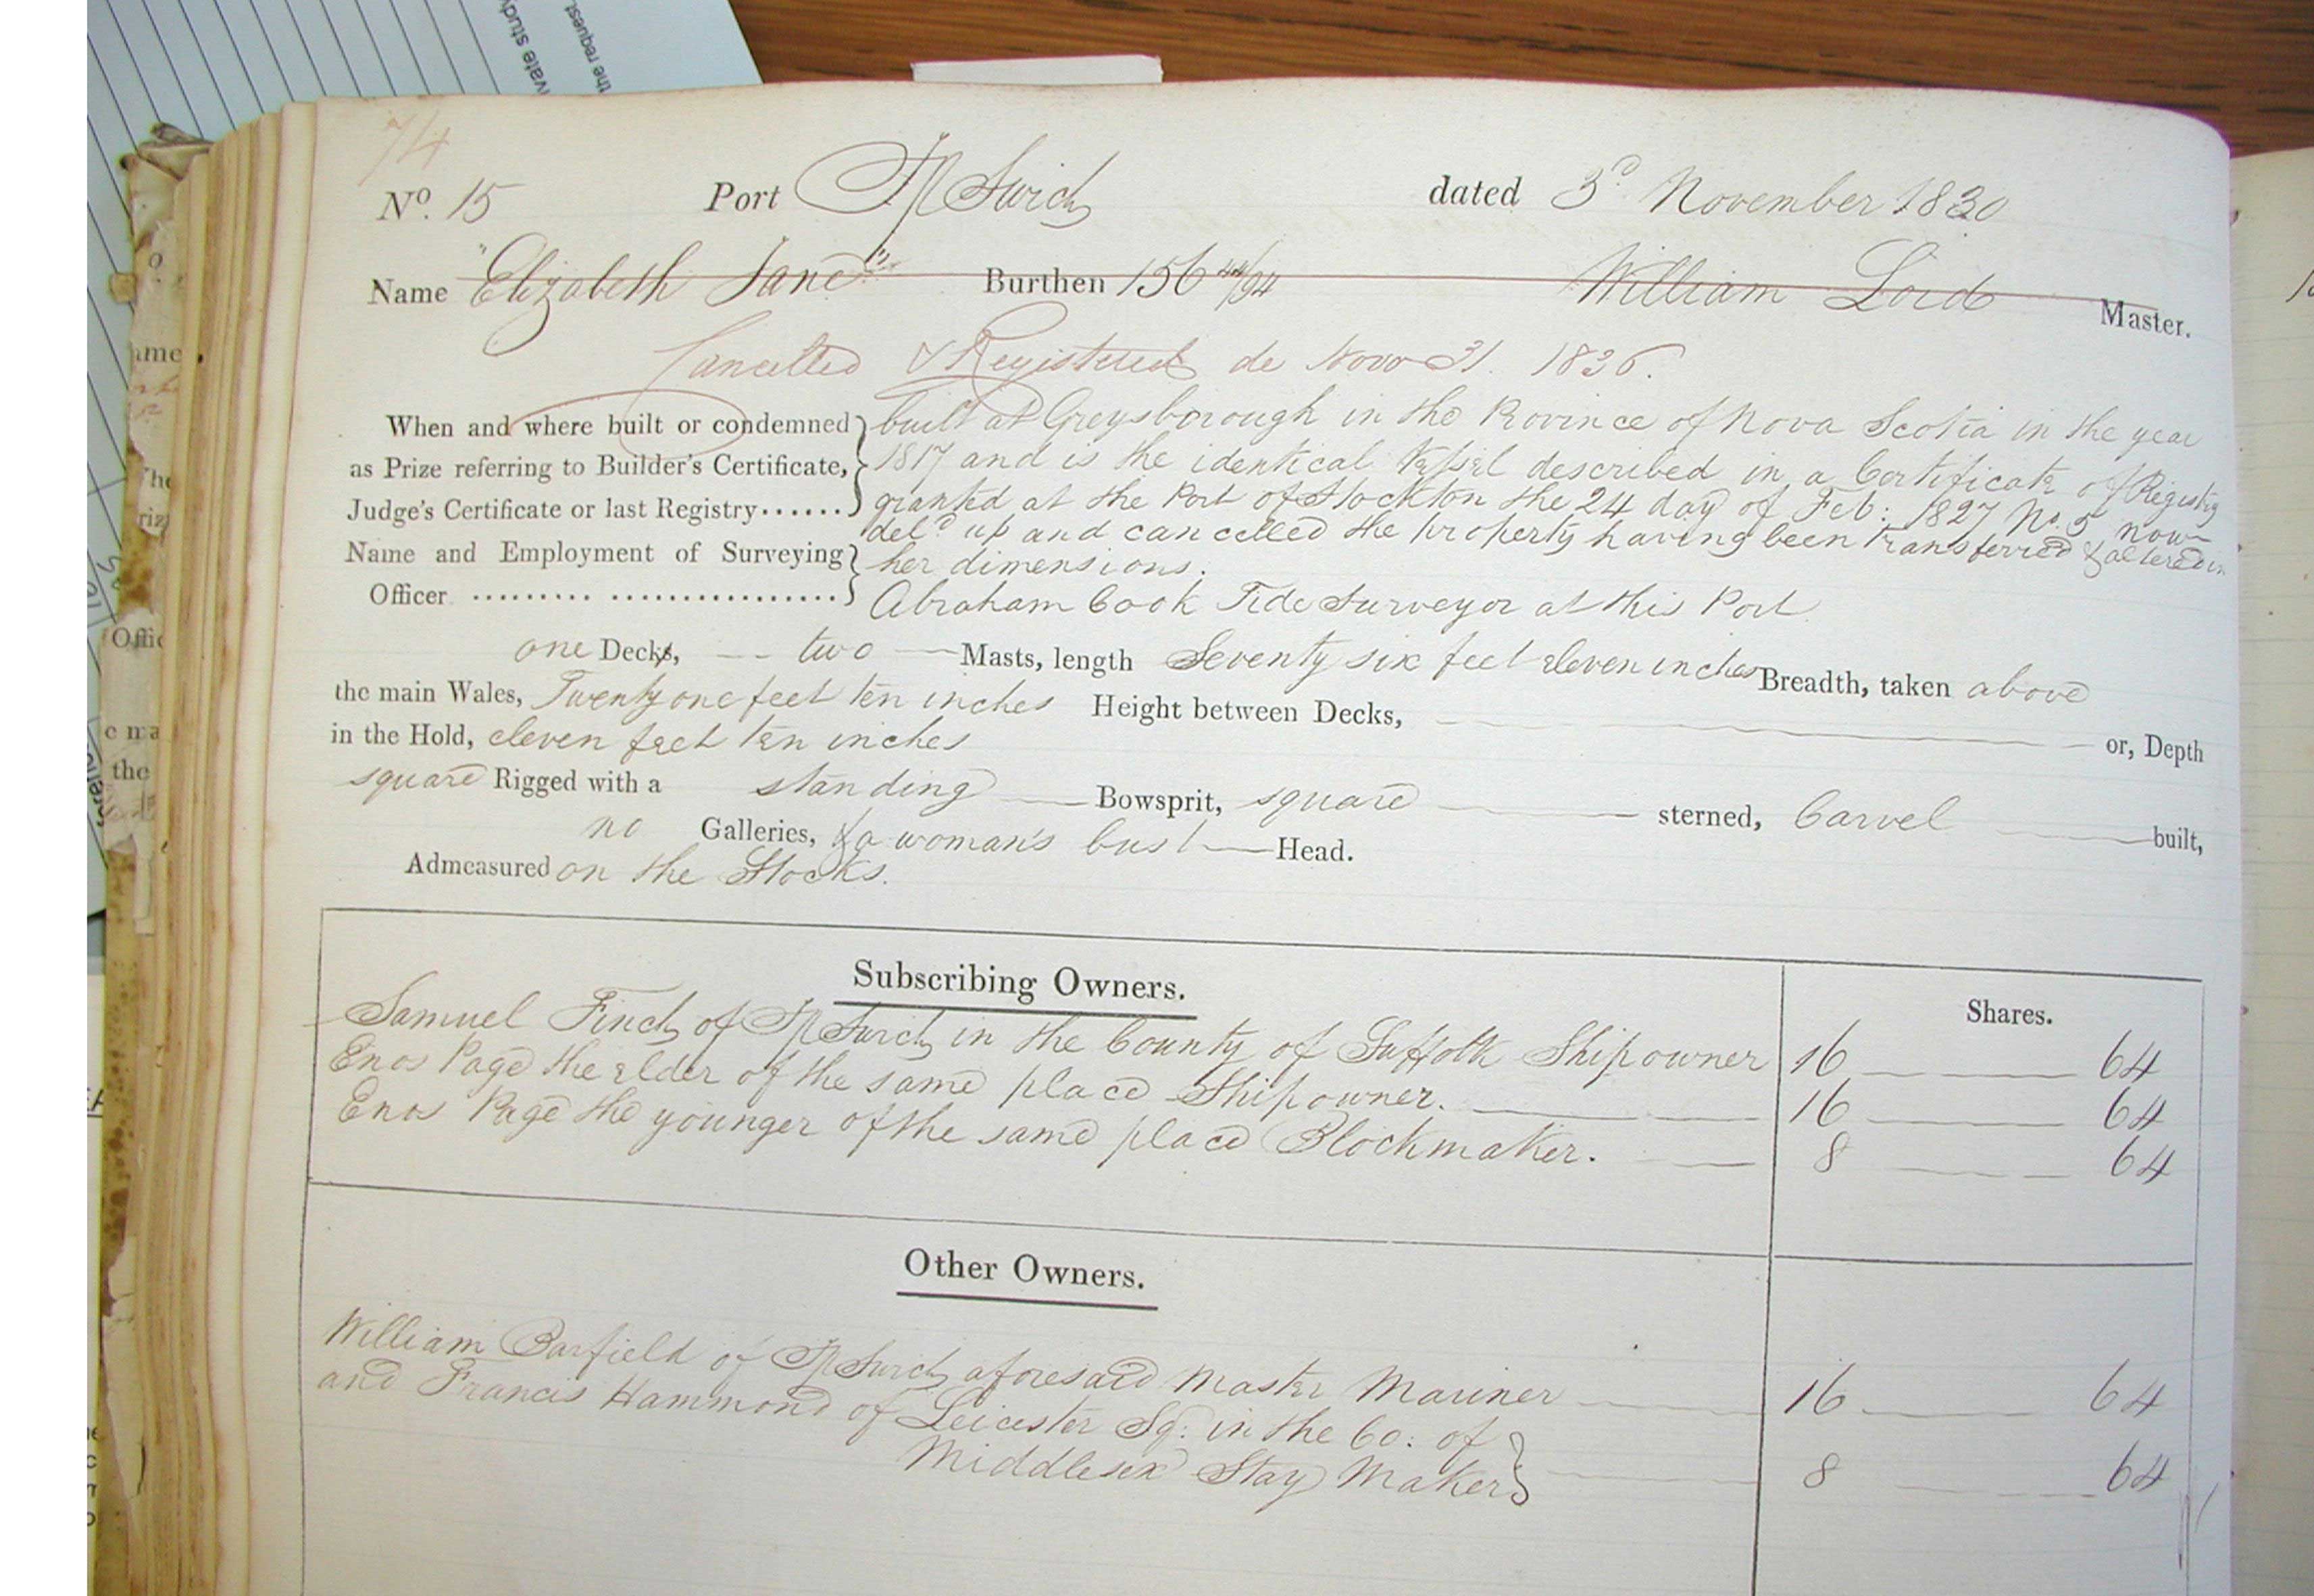 vate study
the request.
74
No. 15 Port Ipswich dated 3d November 1830
Name "Elizabeth Jane" Burthen 156 44/94 William Lord Master.
Cancelled & Registered de Novo 31. 1836.
When and where built or condemned built at Greysborough in the Province of Nova Scotia in the year
as Prize referring to Builder's Certificate, 1817 and is the identical Vessel described in a Certificate of Registry
Judge's Certificate or last Registry...... granted at the Port of Stockton the 24 day of Feb: 1827 No. 5 now
deld up and cancelled the Property having been transferred & altered in
Name and Employment of Surveying her dimensions.
Officer ......... ................ Abraham Cook Tide Surveyor at this Port
one Decks, two Masts, length Seventy six feet eleven inches Breadth, taken above
the main Wales, Twenty one feet ten inches Height between Decks, or, Depth
in the Hold, eleven feet ten inches
square Rigged with a standing Bowsprit, square sterned, Carvel built,
no Galleries, & a woman's bust Head.
Admeasured on the Stocks.
Subscribing Owners. Shares.
Samuel Finch of Ipswich in the County of Suffolk Ship owner 16 64
Enos Page the elder of the same place Ship owner. 16 64
Enos Page the younger of the same place Blockmaker. 8 64
Other Owners.
William Barfield of Ipswich aforesaid Master Mariner 16 64
and Francis Hammond of Leicester Sq: in the Co: of
Middlesex Stay Maker 8 64